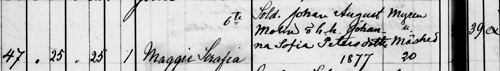 6te Sold. Johan August Myren
Molin & h. h. Johan- u.
na Sofia Petersdotter Måshed
47. 25. 25. 1 Maggie Serafia 1877 20
39